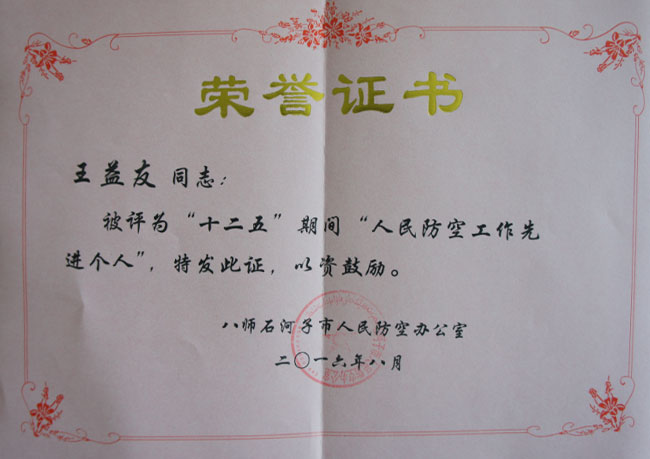 荣誉证书
王益友 同志：
被评为“十二五”期间“人民防空工作先
进个人”，特发此证，以资鼓励。
八师石河子市人民防空办公室
二〇一六年八月